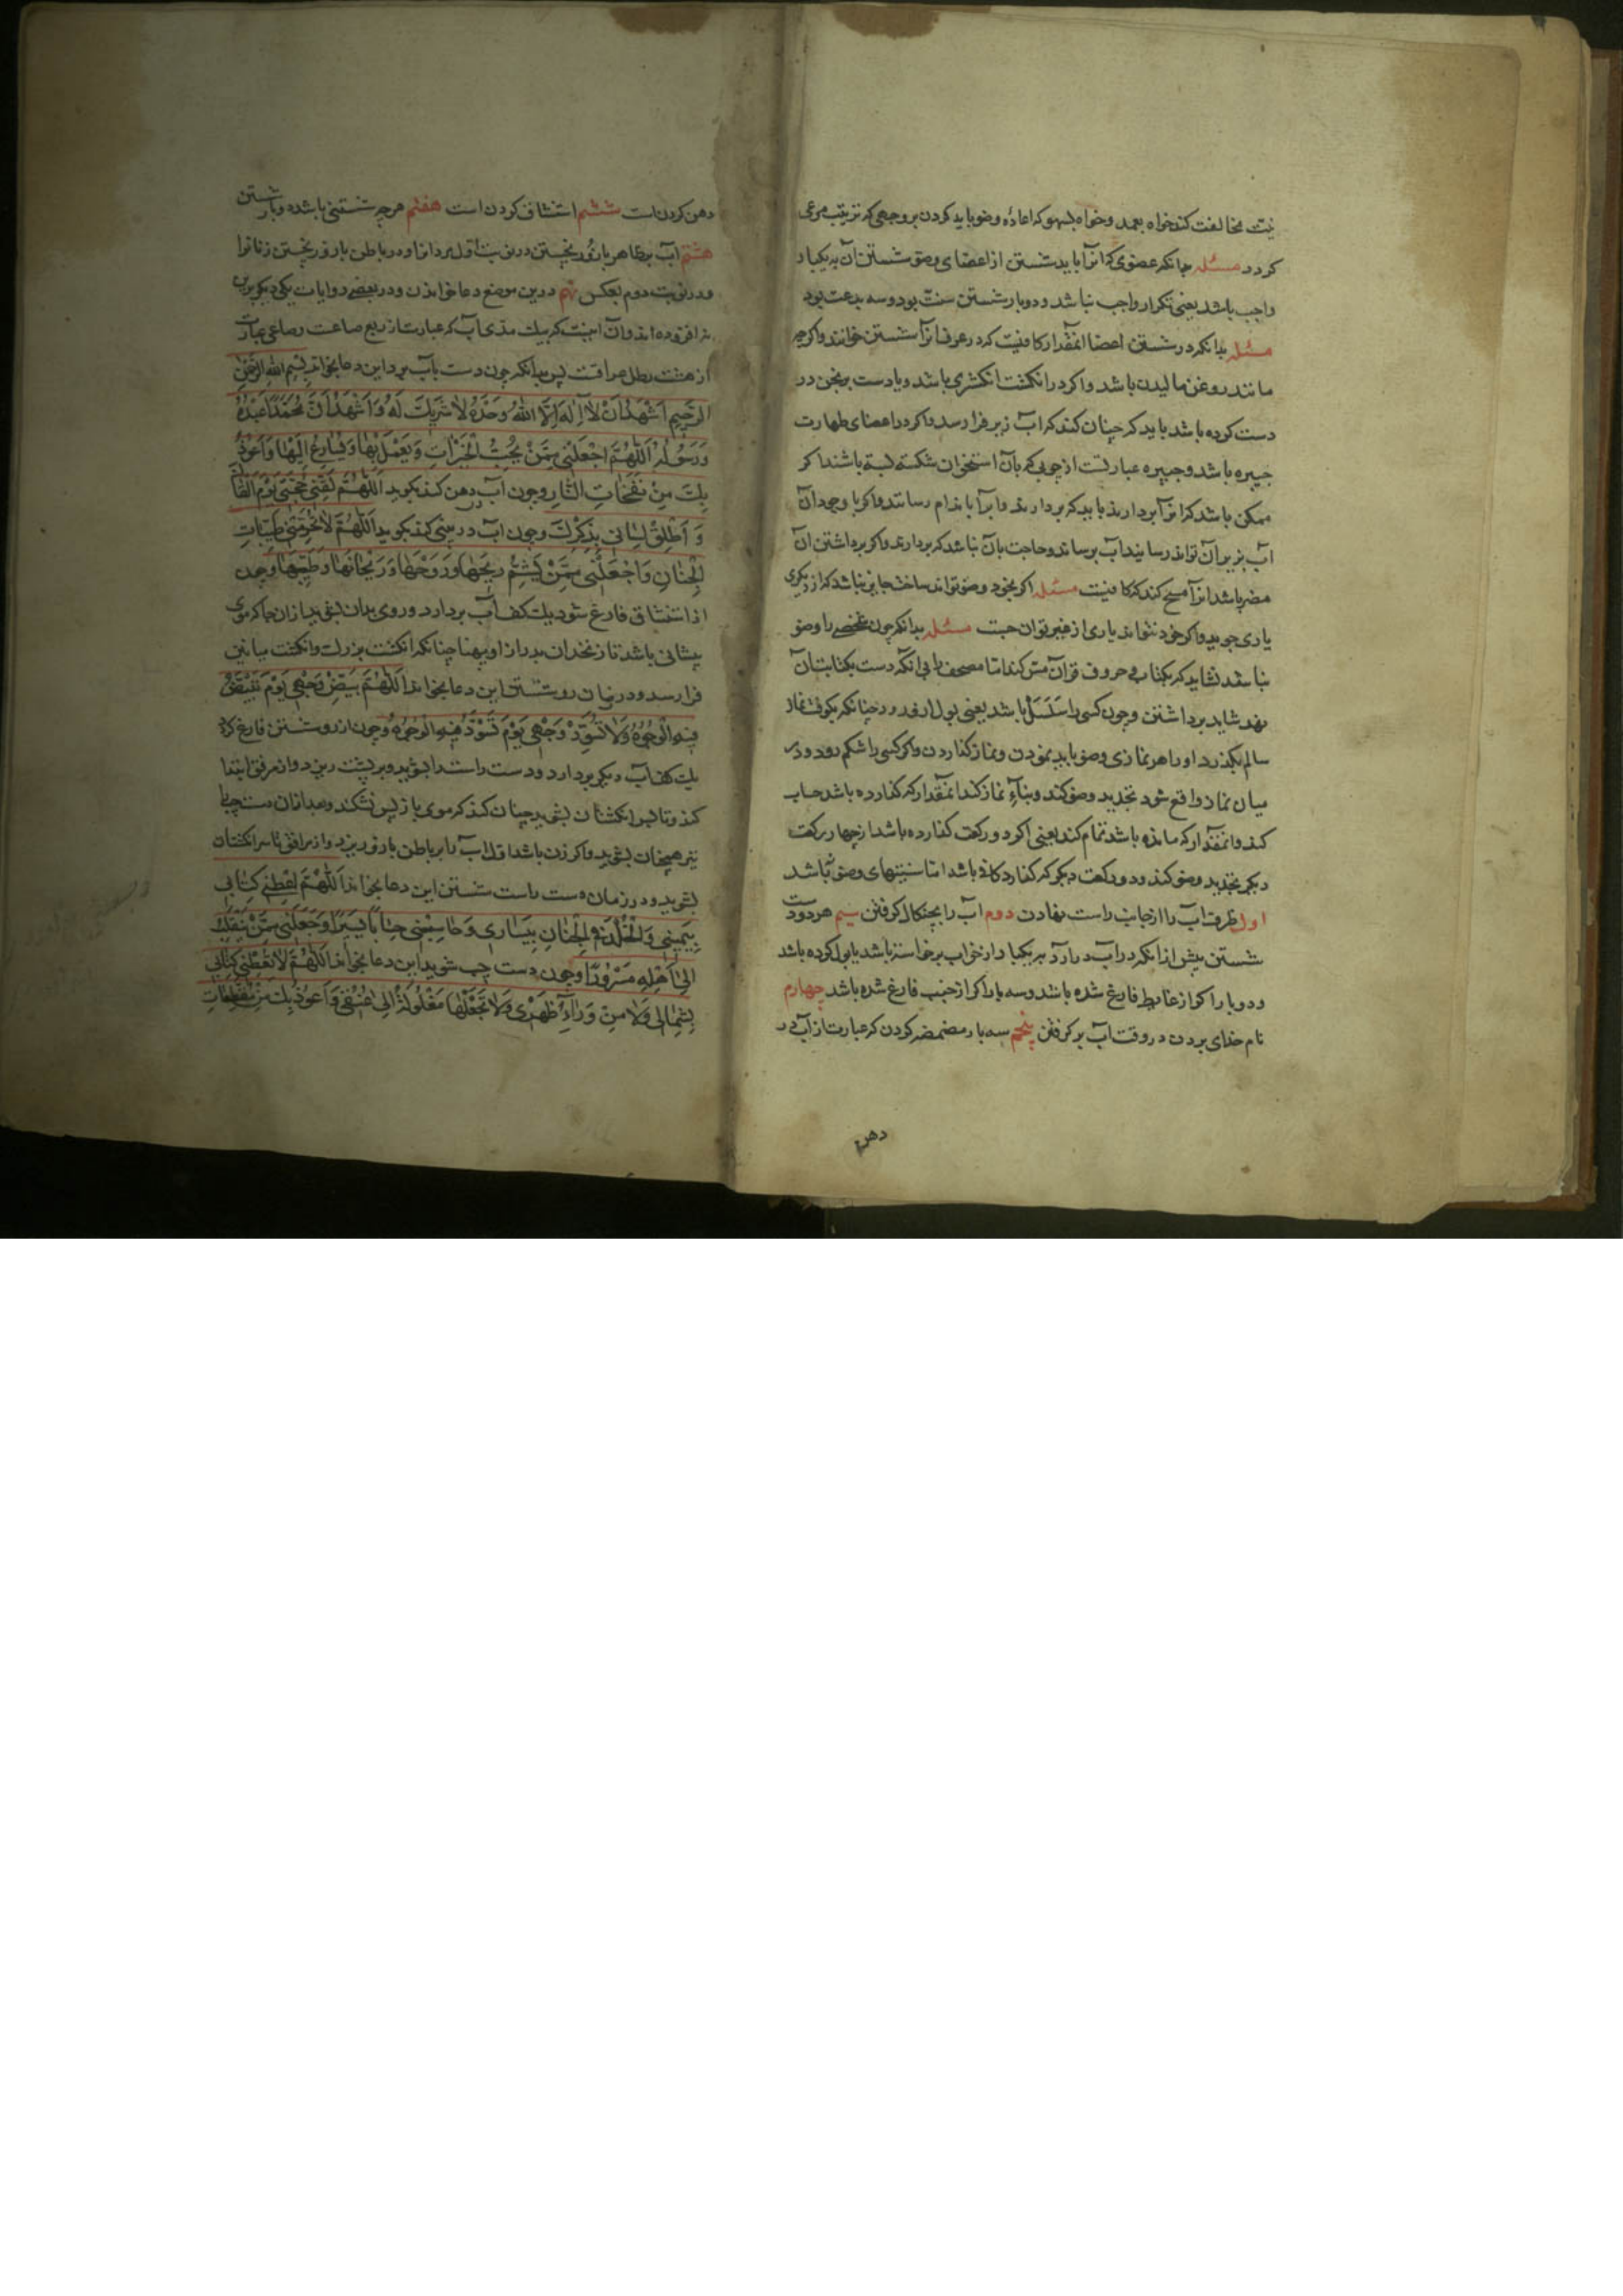 نیت مخالفت کند خواه بعمد و خواه بسهو که اعاده وضو باید کردن بر وجهی که ترتیب مرعی
کردد مسئله بدانکه عضوی که انرا باید شستن از اعضای وضو شستن آن به یکبار
واجب باشد یعنی تکرار واجب نباشد و دوبار شستن سنت بود و سه بدعت بود
مسئله بدانکه در شستن اعضا آنمقدار کافیست که در عرف انرا شستن خوانند واکرچه
مانند روغن مالیدن باشد واکر در انکشت انکشتری باشد و یا دست برنجن در
دست کرده باشد باید که چنان کند که آب زیر فرا رسد واکر در اعضای طهارت
جبیره باشد و جبیره عبارتست از چوبی که بآن استخوان شکسته بسته باشند اکر
ممکن باشد که انرا بردارند باید که بردارند و آبرا باندام رسانند واکر با وجود آن
آب بزیر آن تواند رسانید آب برساند و حاجت بآن نباشد که بردارند واکر برداشتن ان
مضر باشد انرا مسح کند که کافیست مسئله اکر بخود وضو تواند ساخت جایز نباشد که از دیکری
یاری جوید واکر خود نتواند یاری از غیر توان جست مسئله بدانکه چون شخصی را وضو
نباشد نشاید که بکتابی حروف قرآن مس کند اما مصحف را بی انکه دست بکتابت آن
نهد شاید برداشتن و چون کسی را سلسل باشد یعنی بول ازو رود چنانکه یکوقت نماز
سالم نکذرد او را هر نمازی وضو باید نمودن و نماز کذاردن واکر کسی را شکم رود و در
میان نماز واقع شود تجدید وضو کند و بناء نماز کند آنمقدار که کذارده باشد حساب
کند و آنمقدار که مانده باشد تمام کند یعنی اکر دو رکعت کذارده باشد از چهار رکعت
دیکر تجدید وضو کند و دو رکعت دیکر که کذارد کافی باشد اما سنتهای وضو نه باشد
اول ظرف آب را از جانب راست نهادن دوم آب را بچنکال کرفتن سیم هر دو دست
شستن پیش از انکه در آب در آرد به یکبار اکر از خواب برخواسته باشد یا بول کرده باشد
و دو بار اکر از غایط فارغ شده باشد و سه بار اکر از جنب فارغ شده باشد چهارم
نام خدای بردن در وقت آب بر کرفتن پنجم سه بار مضمضه کردن که عبارت از آب در
دهن
دهن کردن است ششم استنشاق کردن است هفتم هرچه شستنی باشد دوبار شستن
هشتم آب بظاهر بازو ریختن در نوبت اول مردانرا و در باطن بازو ریختن زنانرا
و در نوبت دوم بعکس نهم درین موضع دعا خواندن و در بعضی روایات یکی دیکر برین
نه افزوده اند و آن اینست که بیک مدی آب که عبارت از ربع صاعست و صاعی عبارت
از هشت رطل عراقست پس بدانکه چون دست بآب برد این دعا بخواند بسم الله الرحمن
الرحیم اشهد ان لا اله الا الله وحده لا شریک له و اشهد ان محمدا عبده
و رسوله اللهم اجعلنی ممن یحب الخیرات و یعمل بها و یسارع الیها و اعوذ
بک من نفخات النار و چون آب در دهن کند بکوید اللهم لقنی حجتی یوم القاک
و اطلق لسانی بذکرک و چون آب در بینی کند بکوید اللهم لا تحرمنی طیبات
الجنان و اجعلنی ممن یشم ریحها و روحها و ریحانها و طیبها و چون
از استنشاق فارغ شود یک کف آب بردارد و روی بدان بشوید از ان جا که موی
پیشانی باشد تا زنخدان بدرازا و پهنا چنانکه انکشت بزرک و انکشت میانین
فرا رسد و در زمان رو شستن این دعا بخواند اللهم بیض وجهی یوم تبیض
فیه الوجوه ولا تسود وجهی یوم تسود فیه الوجوه و چون از رو شستن فارغ کردد
یک کف آب دیکر بردارد و دست راست را بشوید و بر پشت ریزد و از مرفق ابتدا
کند و تا سر انکشتان بشوید چنان کند که موی باز پس نشکند و بعد از ان دست چپ را
نیز همچنان بشوید واکر زن باشد اول آب را بر باطن بازو ریزد و از مرافق تا سر انکشتان
بشوید و در زمان دست راست شستن این دعا بخواند اللهم اعطنی کتابی
بیمینی والخلد فی الجنان بیساری و حاسبنی حسابا یسیرا و جعلنی ممن ینقلب
الی اهله مسرورا و چون دست چپ شوید این دعا بخواند اللهم لا تعطنی کتابی
بشمالی ولا من وراء ظهری ولا تجعلها مغلولة الی عنقی و اعوذ بک من مقطعات